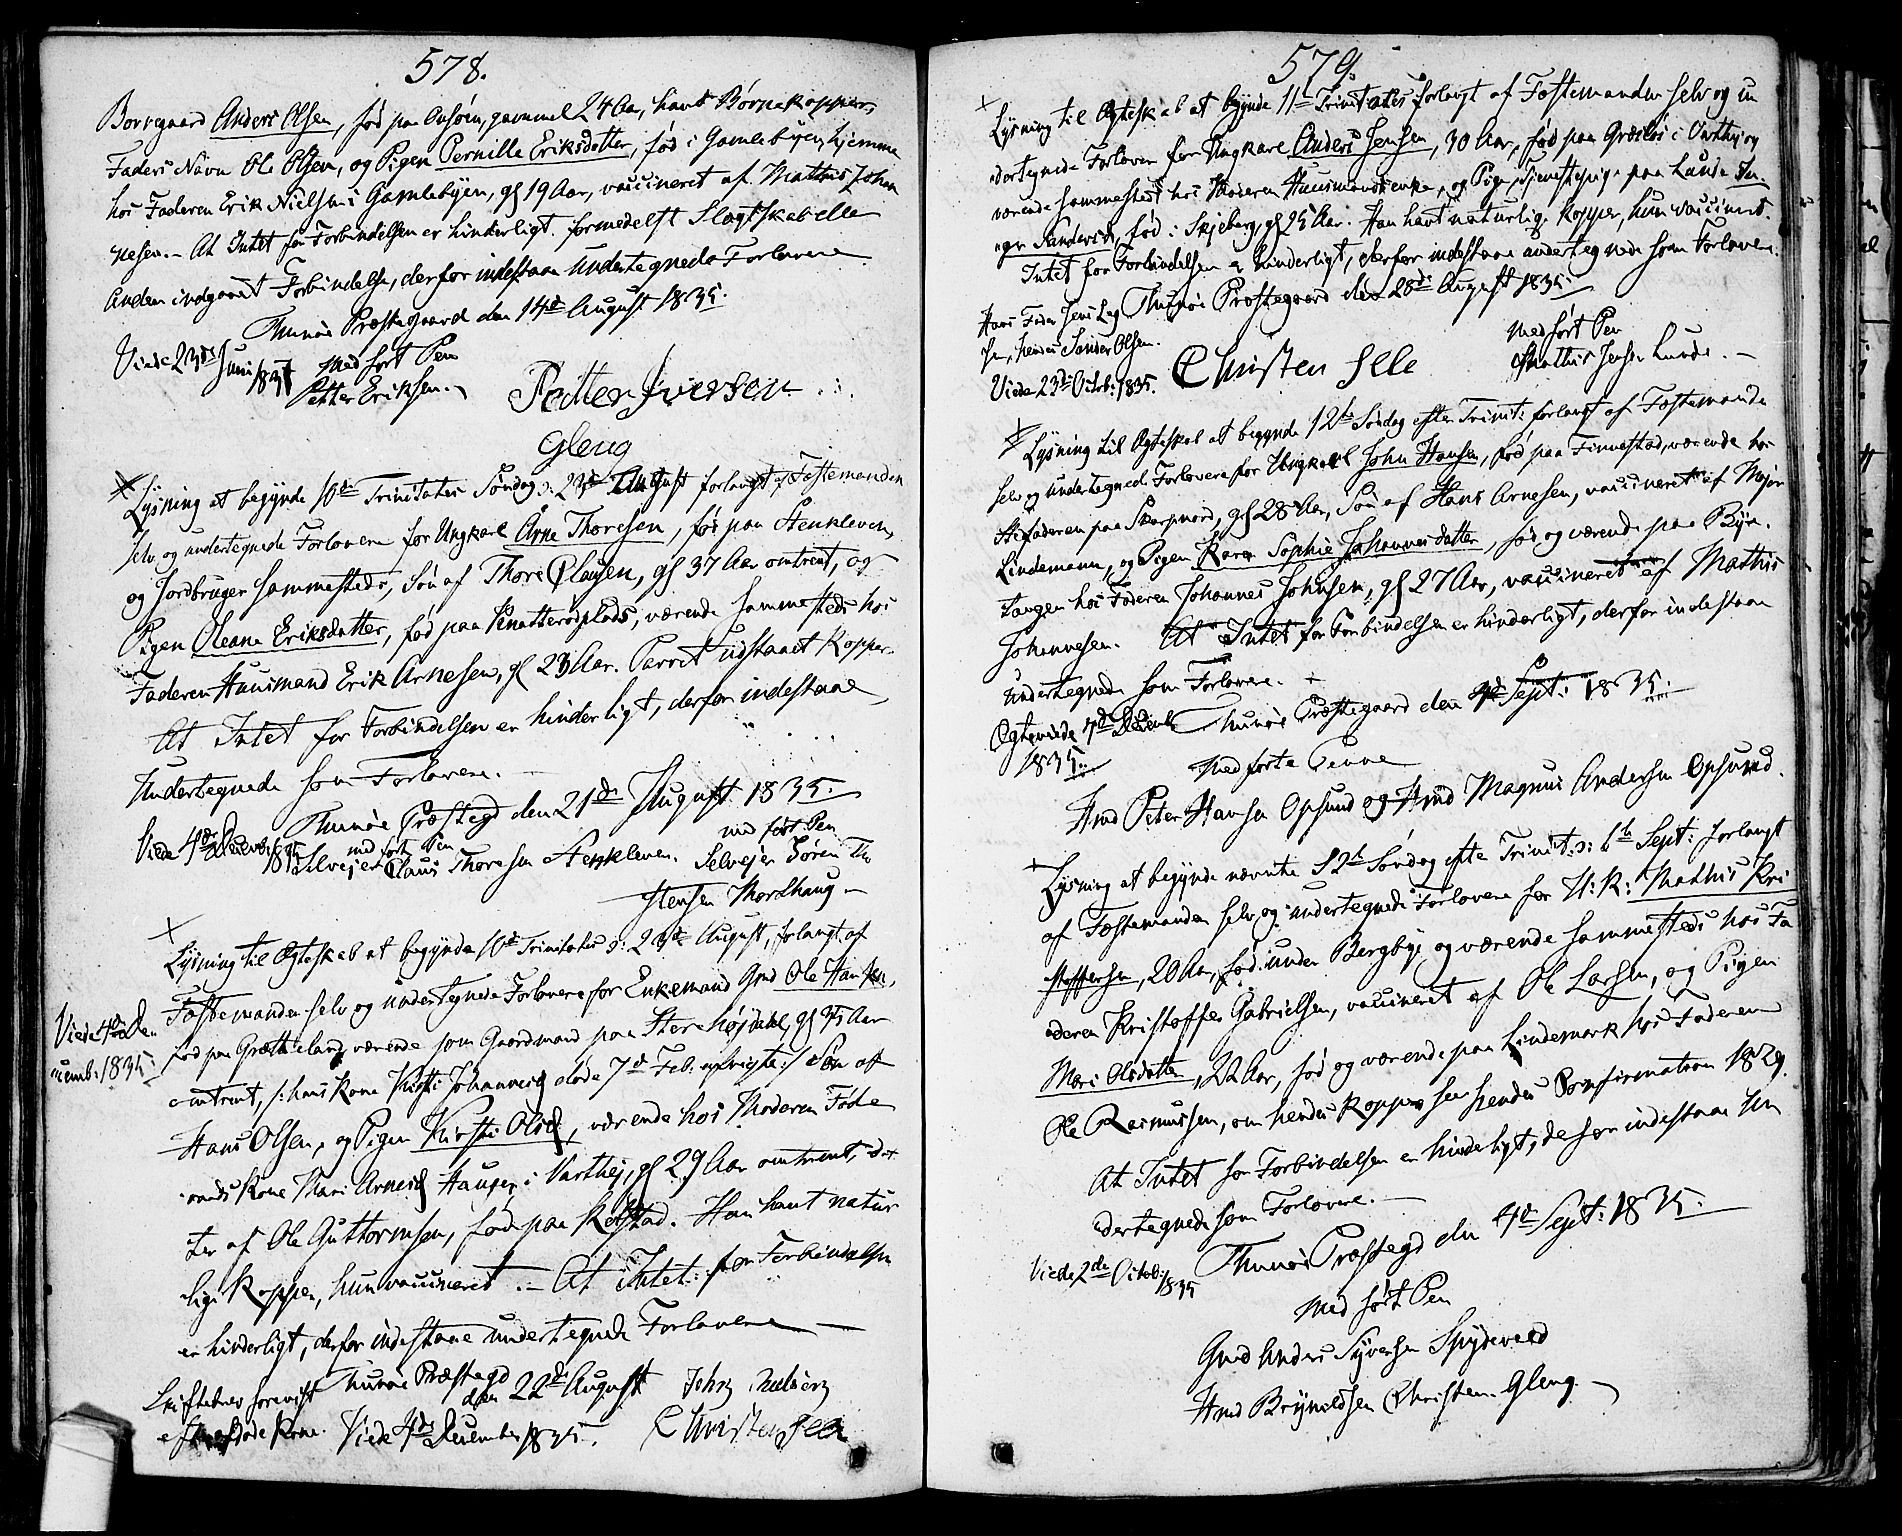 578.
Borregaard Anders Olsen, fød paa Onsøen, gammel 24 Aar, havt Børnekopper,
Faders Navn Ole Olsen, og Pigen Pernille Eriksdatter, fød i Gamlebyen, hjemme
hos Faderen Erik Nielsen i Gamlebyen, gl 19 Aar, vaccineret af Mathis Johan
nesen. - At Intet for Forbindelsen er hinderligt formedelst Slægtskab eller
Anden indgaaet Forbindelse, derfor indestaae Undertegnede Forlovere
Thunøe Præstegaard den 14de August 1835.
Viede 23de Juni 1837
Med ført Pen
Petter Eriksen.
Petter Iversen
Gleng
Lysning at begynde 10de Trinitatis Søndag d: 23de August forlangt af Fæstemanden
selv og undertegnede Forlovere for Ungkarl Arne Thoresen, fød paa Stenkleven,
og Jordbruger sammesteds, Søn af Thore Clausen, gl 37 Aar omtrent, og
Pigen Oleana Eriksdatter, fød paa Knatterødplads, værende sammesteds hos
Faderen Huusmand Erik Arnesen, gl 23 Aar. Parret udstaaet Kopper.
At Intet for Forbindelsen er hinderligt, derfor indestaae
Undertegnede som Forlovere.
Thunøe Præstegd den 21de August 1835.
Viede 4de Decemb: 1835
med ført Pen
med ført Pen
Selvejer Claus Thoresen Stenkleven. Selvejer Søren Tho
stensen Mordhaug
Lysning til Ægteskab at begynde 10de Trinitatis d: 23de August, forlangt af
Fæstemanden selv og undertegnede Forlovere for Enkemand Grd Ole Hansen,
fød paa Grøtteland, værende som Gaardmand paa Store Højdahl, gl 35 Aar
Viede 4de De
cemb: 1835
omtrent, /: hans Kone Kirsti Johannesd døde 7de Feb. :/ Søn af
Hans Olsen, og Pigen Kirsti Olsd, værende hos Moderen Føde
raads Kone Mari Arnesd Haugen i Varthej, gl 29 Aar omtrent, Dat
ter af Ole Guttormsen, fød paa Kolstad. Han havt natur
lige Kopper, hun vaccineret. - At Intet for Forbindelsen
er hinderligt, derfor indestaae undertegnede Forlovere
Thunøe Præstegd
den 22de August
Skiftebrev forevist
efter afdøde Kone. Viede 4de December 1835.
Christen Elle
579.
Lysning til Ægteskab at begynde 11te Trinitatis forlangt af Fæstemanden selv og un
dertegnede Forlovere for Ungkarl Anders Jensen, 30 Aar, fød paa Græslös i Varthej og
værende sammesteds hos Moderen Huusmandsenke, og Pige, Tjenestepige paa Lunde In
ger Sandersd, fød i Skjeberg, gl 25 Aar. Han havt naturlige Kopper, hun vaccineret.
Intet for Forbindelsen er hinderligt, derfor indestaae undertegnede som Forlovere.
Thunøe Præstegaard den 28de August 1835
Hans Fader Jens
sen, hendes Sander Olsen.
Viede 23de Octob: 1835.
Christen Elle
Med ført Pen
Mathis Jensen Lunde. -
Lysning til Ægteskab at begynde 12te Søndag efter Trinit: forlangt af Fæstemande
selv og undertegnede Forlovere for Ungkarl John Hansen, fød paa Finnestad, værende hos
Stefaderen paa Skarpnord, gl 28 Aar, Søn af Hans Arnesen, vaccineret af Major
Lindemann, og Pigen Karen Sophie Johannesdatter, fød og værende paa Bye-
tangen hos Faderen Johannes Johnsen, gl 27 Aar, vaccineret af Mathis
Johannesen. At Intet for Forbindelsen er hinderligt, derfor indestaae
Undertegnede som Forlovere.
Thunøe Præstegaard den 4de Sept: 1835.
Ægteviede 7de Decemb
1835.
Med førte Penne
Hmd Peter Hansen Opsund og Hmd Magnus Andersen Opsund.
Lysning at begynde nævnte 12te Søndag efter Trinit: d: 6te Sept: forlangt
af Fæstemanden selv og undertegnede Forlovere for U: K: Mathis Kri
stoffersen, 20 Aar, fød under Bergbye og værende sammesteds hos Fa
deren Kristoffer Gabrielsen, vaccineret af Ole Larsen, og Pigen
Mari Olsdatter, 22 Aar, fød og værende paa Lindemark hos Faderen
Ole Rasmussen, om hendes Kopper see hendes Confirmation 1829.
At Intet for Forbindelsen er hinderligt, derfor indestaae Un
dertegnede som Forlovere.
Thunøe Præstegd den 4de Sept: 1835.
Viede 2den Octob: 1835
Med ført Pen
Grmd Anders Syversen Spydeveld
Hmd Brynildsen Christen Gleng.